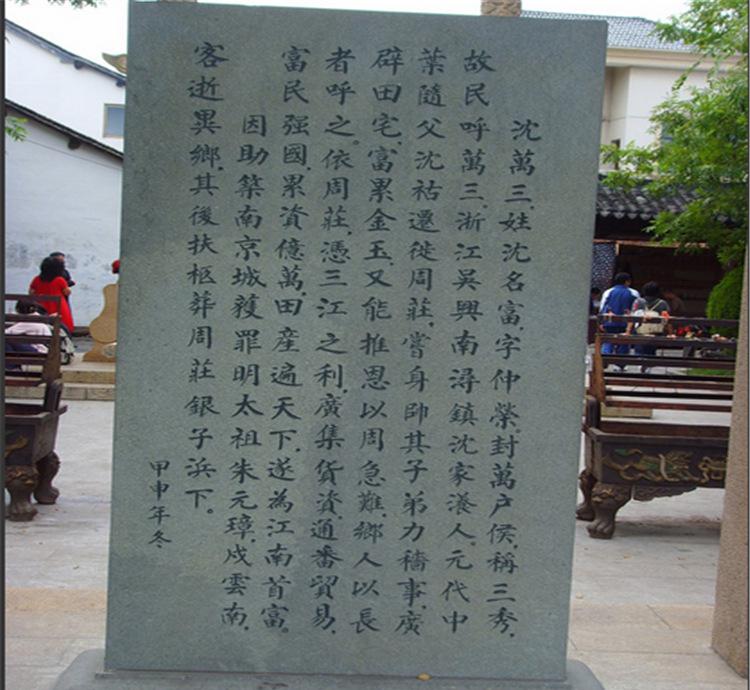 沈萬三，姓沈名富，字仲榮。封萬户侯，稱三秀，
故民呼萬三，浙江吳興南潯鎮沈家漾人，元代中
葉隨父沈祜遷徙周莊，嘗身帥其子弟力穡事，廣
辟田宅，富累金玉，又能推恩以周急難，鄉人以長
者呼之。依周莊，憑三江之利，廣集貨資，通番貿易，
富民强國，累資億萬，田産遍天下，遂為江南首富。
因助築南京城獲罪明太祖朱元璋，戍雲南，
客逝異鄉，其後扶柩葬周莊銀子浜下。
甲申年冬